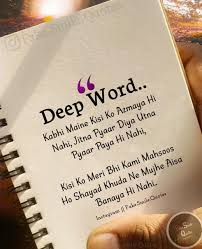 Deep Word..
Kabhi Maine Kisi Ko Azmaya Hi
Nahi, Jitna Pyaar Diya Utna
Pyaar Paya Hi Nahi,
Kisi Ko Meri Bhi Kami Mahsoos
Ho Shayad Khuda Ne Mujhe Aisa
Banaya Hi Nahi,.
Instagram || Fake.Smile.Quotes